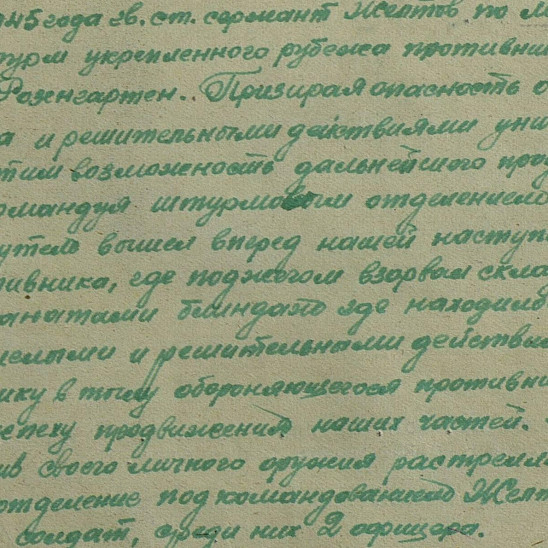 1945 года гв. ст. сержант Желтов по
штурм укрепленного рубежа противни
Розенгартен. Призирая опасность
а и решительными действиями уни
этим возможность дальнейшего про
командуя штурмовым отделением
вышел вперед нашей насту
тивника, где поджогом взорвал скла
гранатами блиндаж где находило
смелыми и решительными действи
нику в тылу обороняющегося противни
успеху продвижения наших частей.
из своего личного оружия расстрелял
отделение под командованием Желт
солдат, среди них 2 офицера.